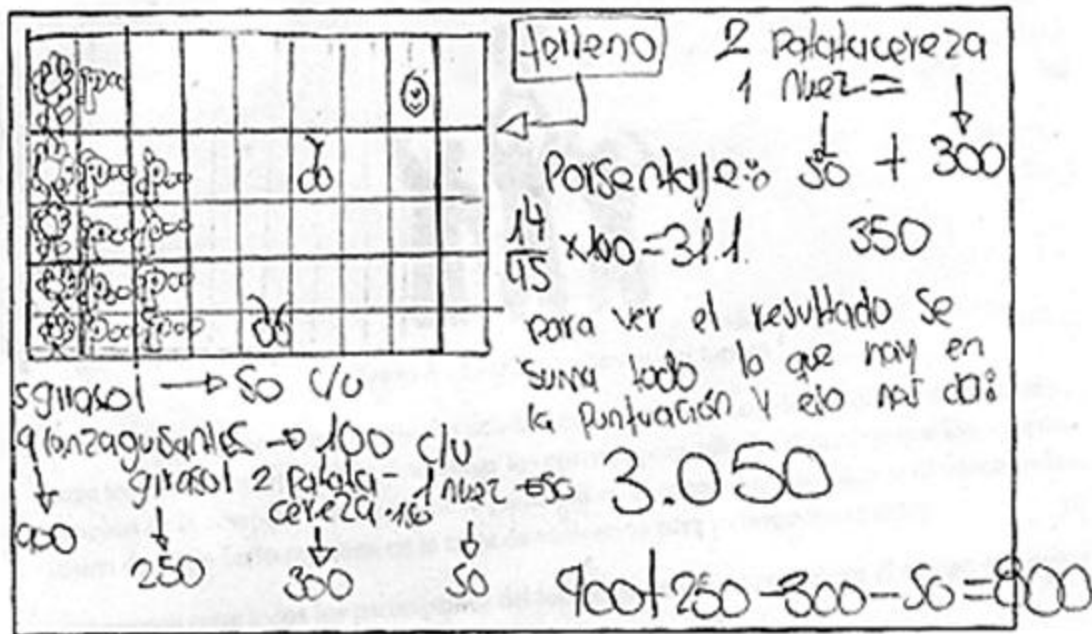 terreno
2 Patatacereza
1 Nuez =
Porsentaje: 50 + 300
14/45 x100 = 31.1.
350
para ver el resultado se
suma todo lo que hay en
la puntuación y eso nos da:
3.050
5 girasol → 50 c/u
9 lanzaguisantes → 100 c/u
900
girasol
250
2 patata-
cereza · 150
300
1 nuez → 50
50
900 + 250 - 300 - 50 = 800